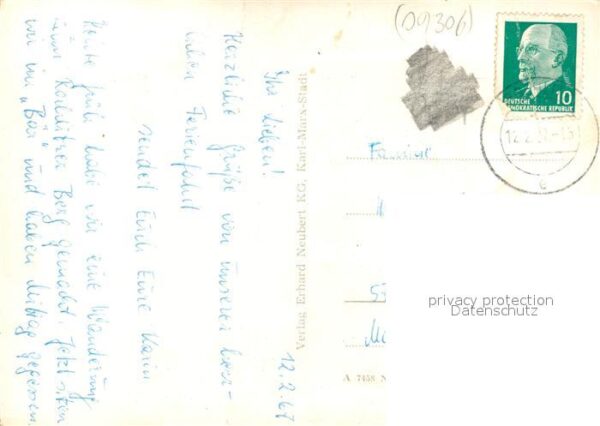 (09306)
DEUTSCHE
DEMOKRATISCHE REPUBLIK
10
12.2.67-15
e
12.2.67
Ihr Lieben!
Herzliche Grüße von unserer
Ferienfahrt
sendet Euch Eure Karin
Heute früh habe wir eine Wanderung
zum Rochlitzer Berg gemacht. Jetzt sitzen
wir im „Bär" und haben Mittag gegessen.
Verlag Erhard Neubert KG, Karl-Marx-Stadt
Familie
A 7458 N
privacy protection
Datenschutz